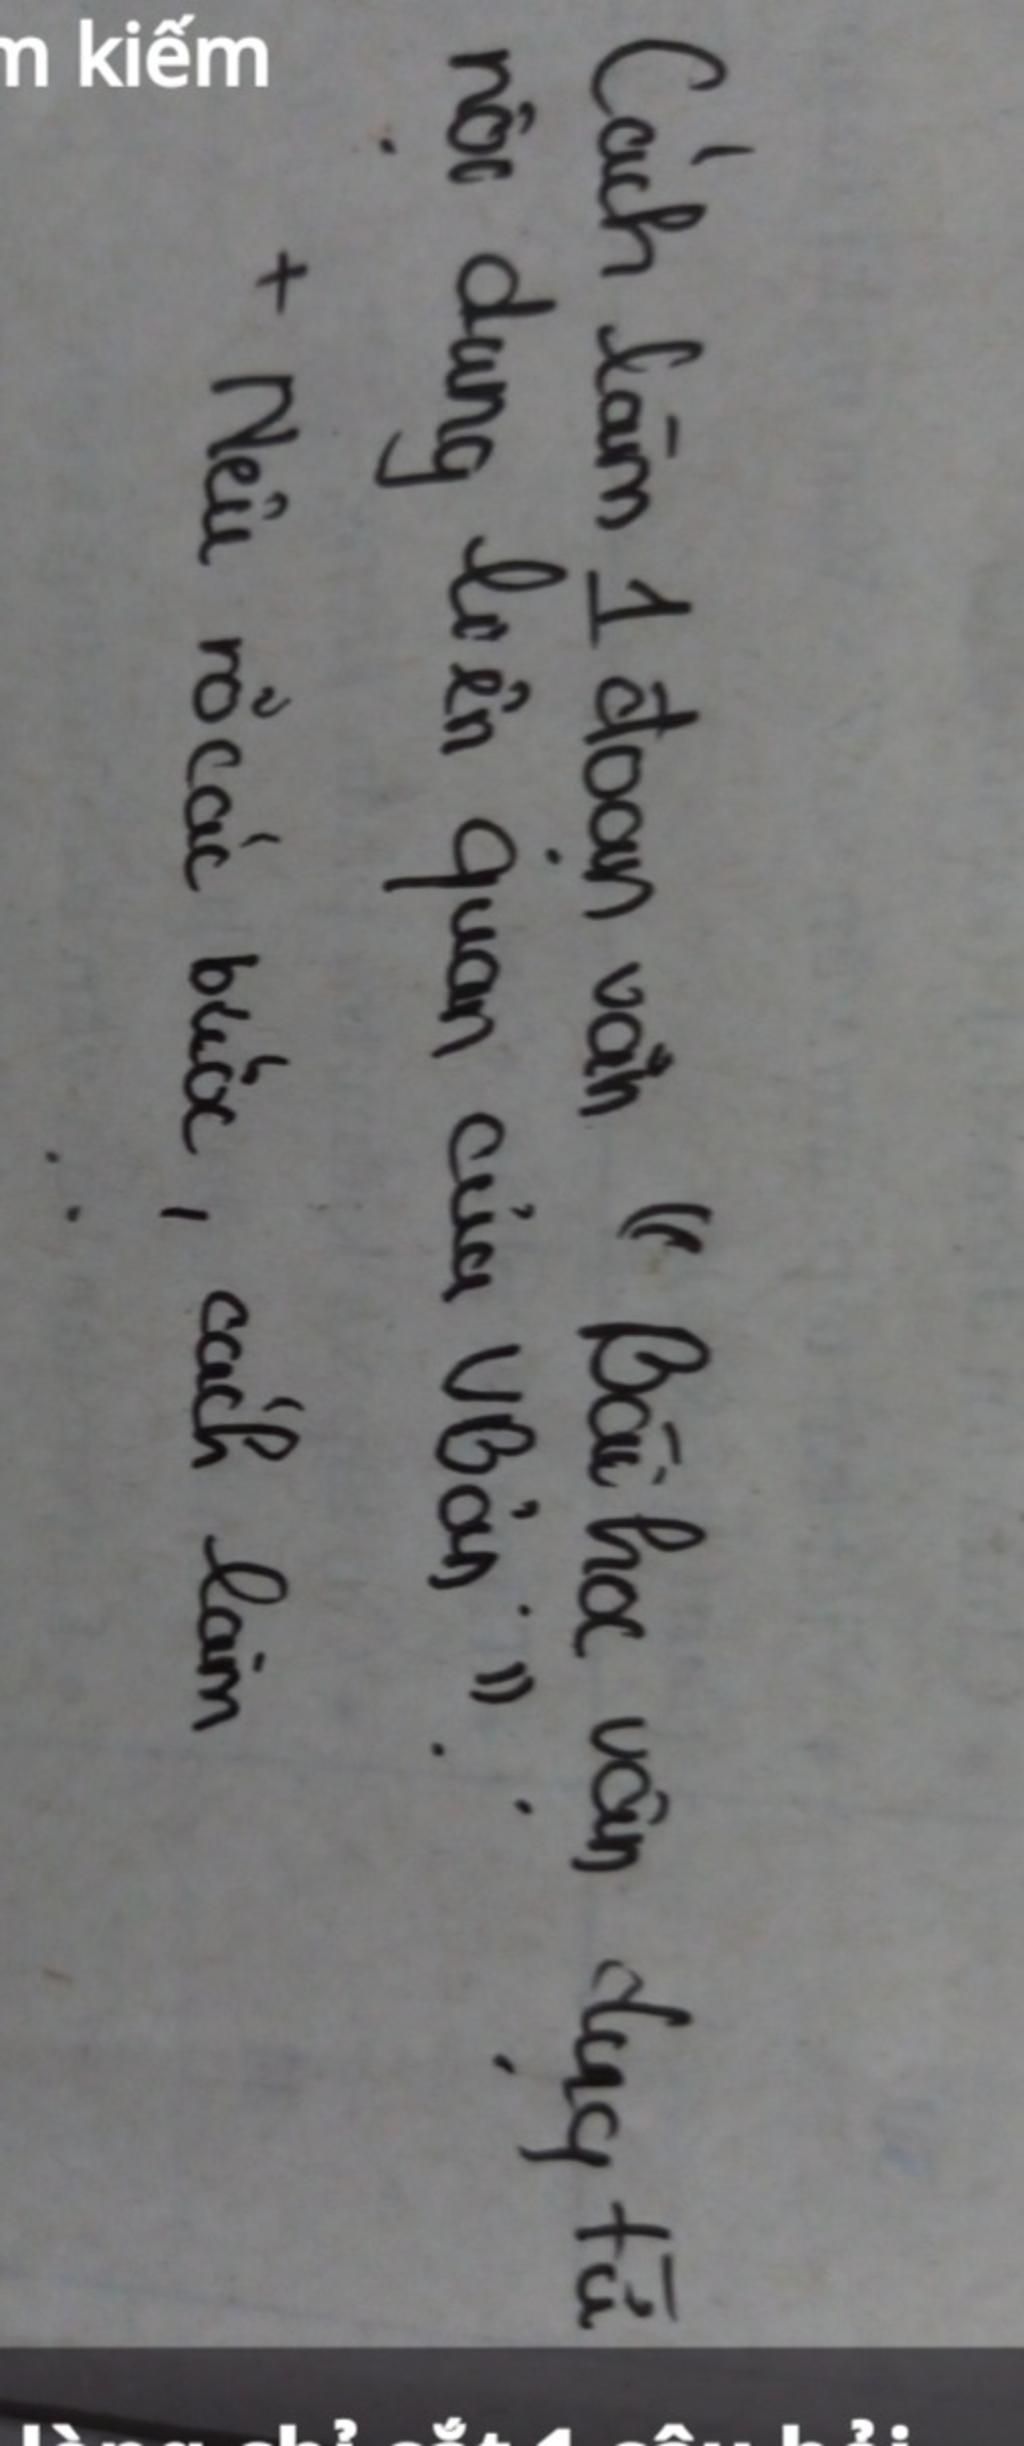 m kiếm
Cách làm 1 đoạn văn " Bài học vận dụng từ
nội dung liên quan của VBản ".
+ Nêu rõ các bước , cách làm
lòng chỉ cắt 1 câu hỏi